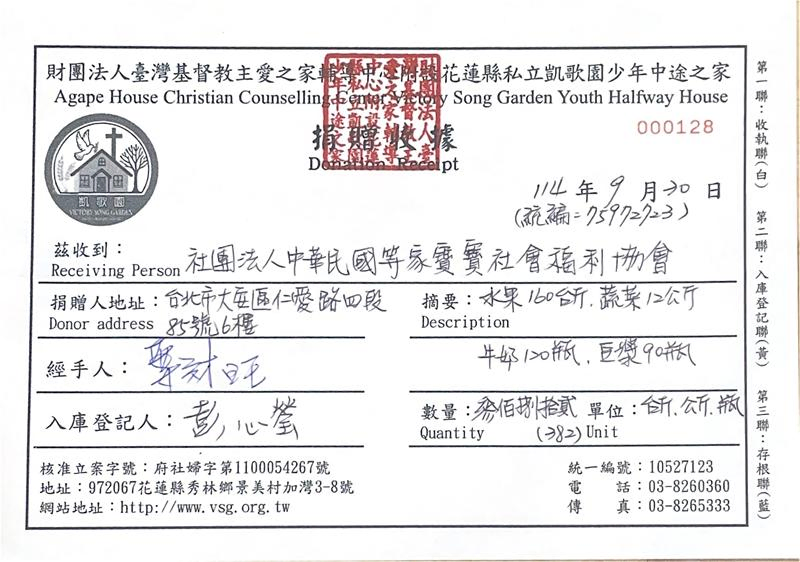 財團法人臺灣基督教主愛之家輔導中心附設花蓮縣私立凱歌園少年中途之家
Agape House Christian Counselling Center Victory Song Garden Youth Halfway House
捐贈收據
Donation Receipt
000128
凱歌園
VICTORY SONG GARDEN
114 年 9 月 30 日
(統編=75972723)
茲收到：
Receiving Person 社團法人中華民國等家寶寶社會福利協會
捐贈人地址：台北市大安區仁愛路四段
Donor address 85號6樓
摘要：水果160台斤、蔬菜12公斤
Description
牛奶120瓶、豆漿90瓶
經手人：
入庫登記人：彭心瑩
數量：參佰捌拾貳 單位：台斤、公斤、瓶
Quantity (382) Unit
核准立案字號：府社婦字第1100054267號
地址：972067花蓮縣秀林鄉景美村加灣3-8號
網站地址：http://www.vsg.org.tw
統一編號：10527123
電 話：03-8260360
傳 真：03-8265333
第一聯：收執聯(白)
第二聯：入庫登記聯(黃)
第三聯：存根聯(藍)